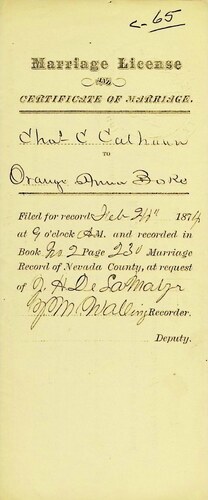 C-65
Marriage License
AND
CERTIFICATE OF MARRIAGE.
Chas C Calhoun
TO
Orange Anna
Filed for record Feb 187
at 9 o'clock A.M. and recorded in
Book No 2 Page 230 Marriage
Record of Nevada County, at request
of J. H De La Matyr
J. M. Walling Recorder.
Deputy.